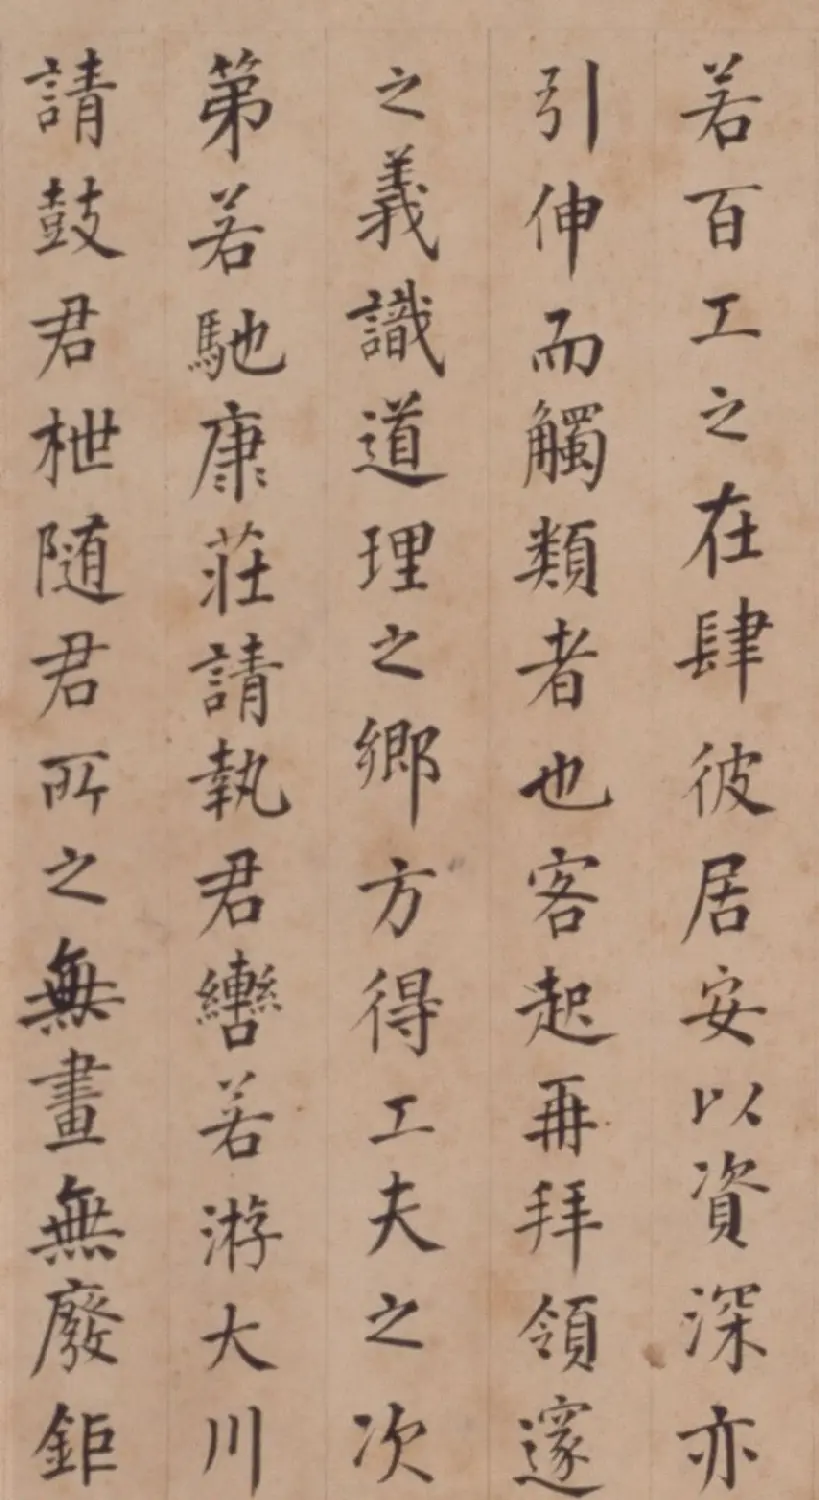 若百工之在肆彼居安以資深亦
引伸而觸類者也客起再拜領邃
之義識道理之鄉方得工夫之次
第若馳康莊請執君轡若游大川
請鼓君枻随君所之無畫無廢鉅